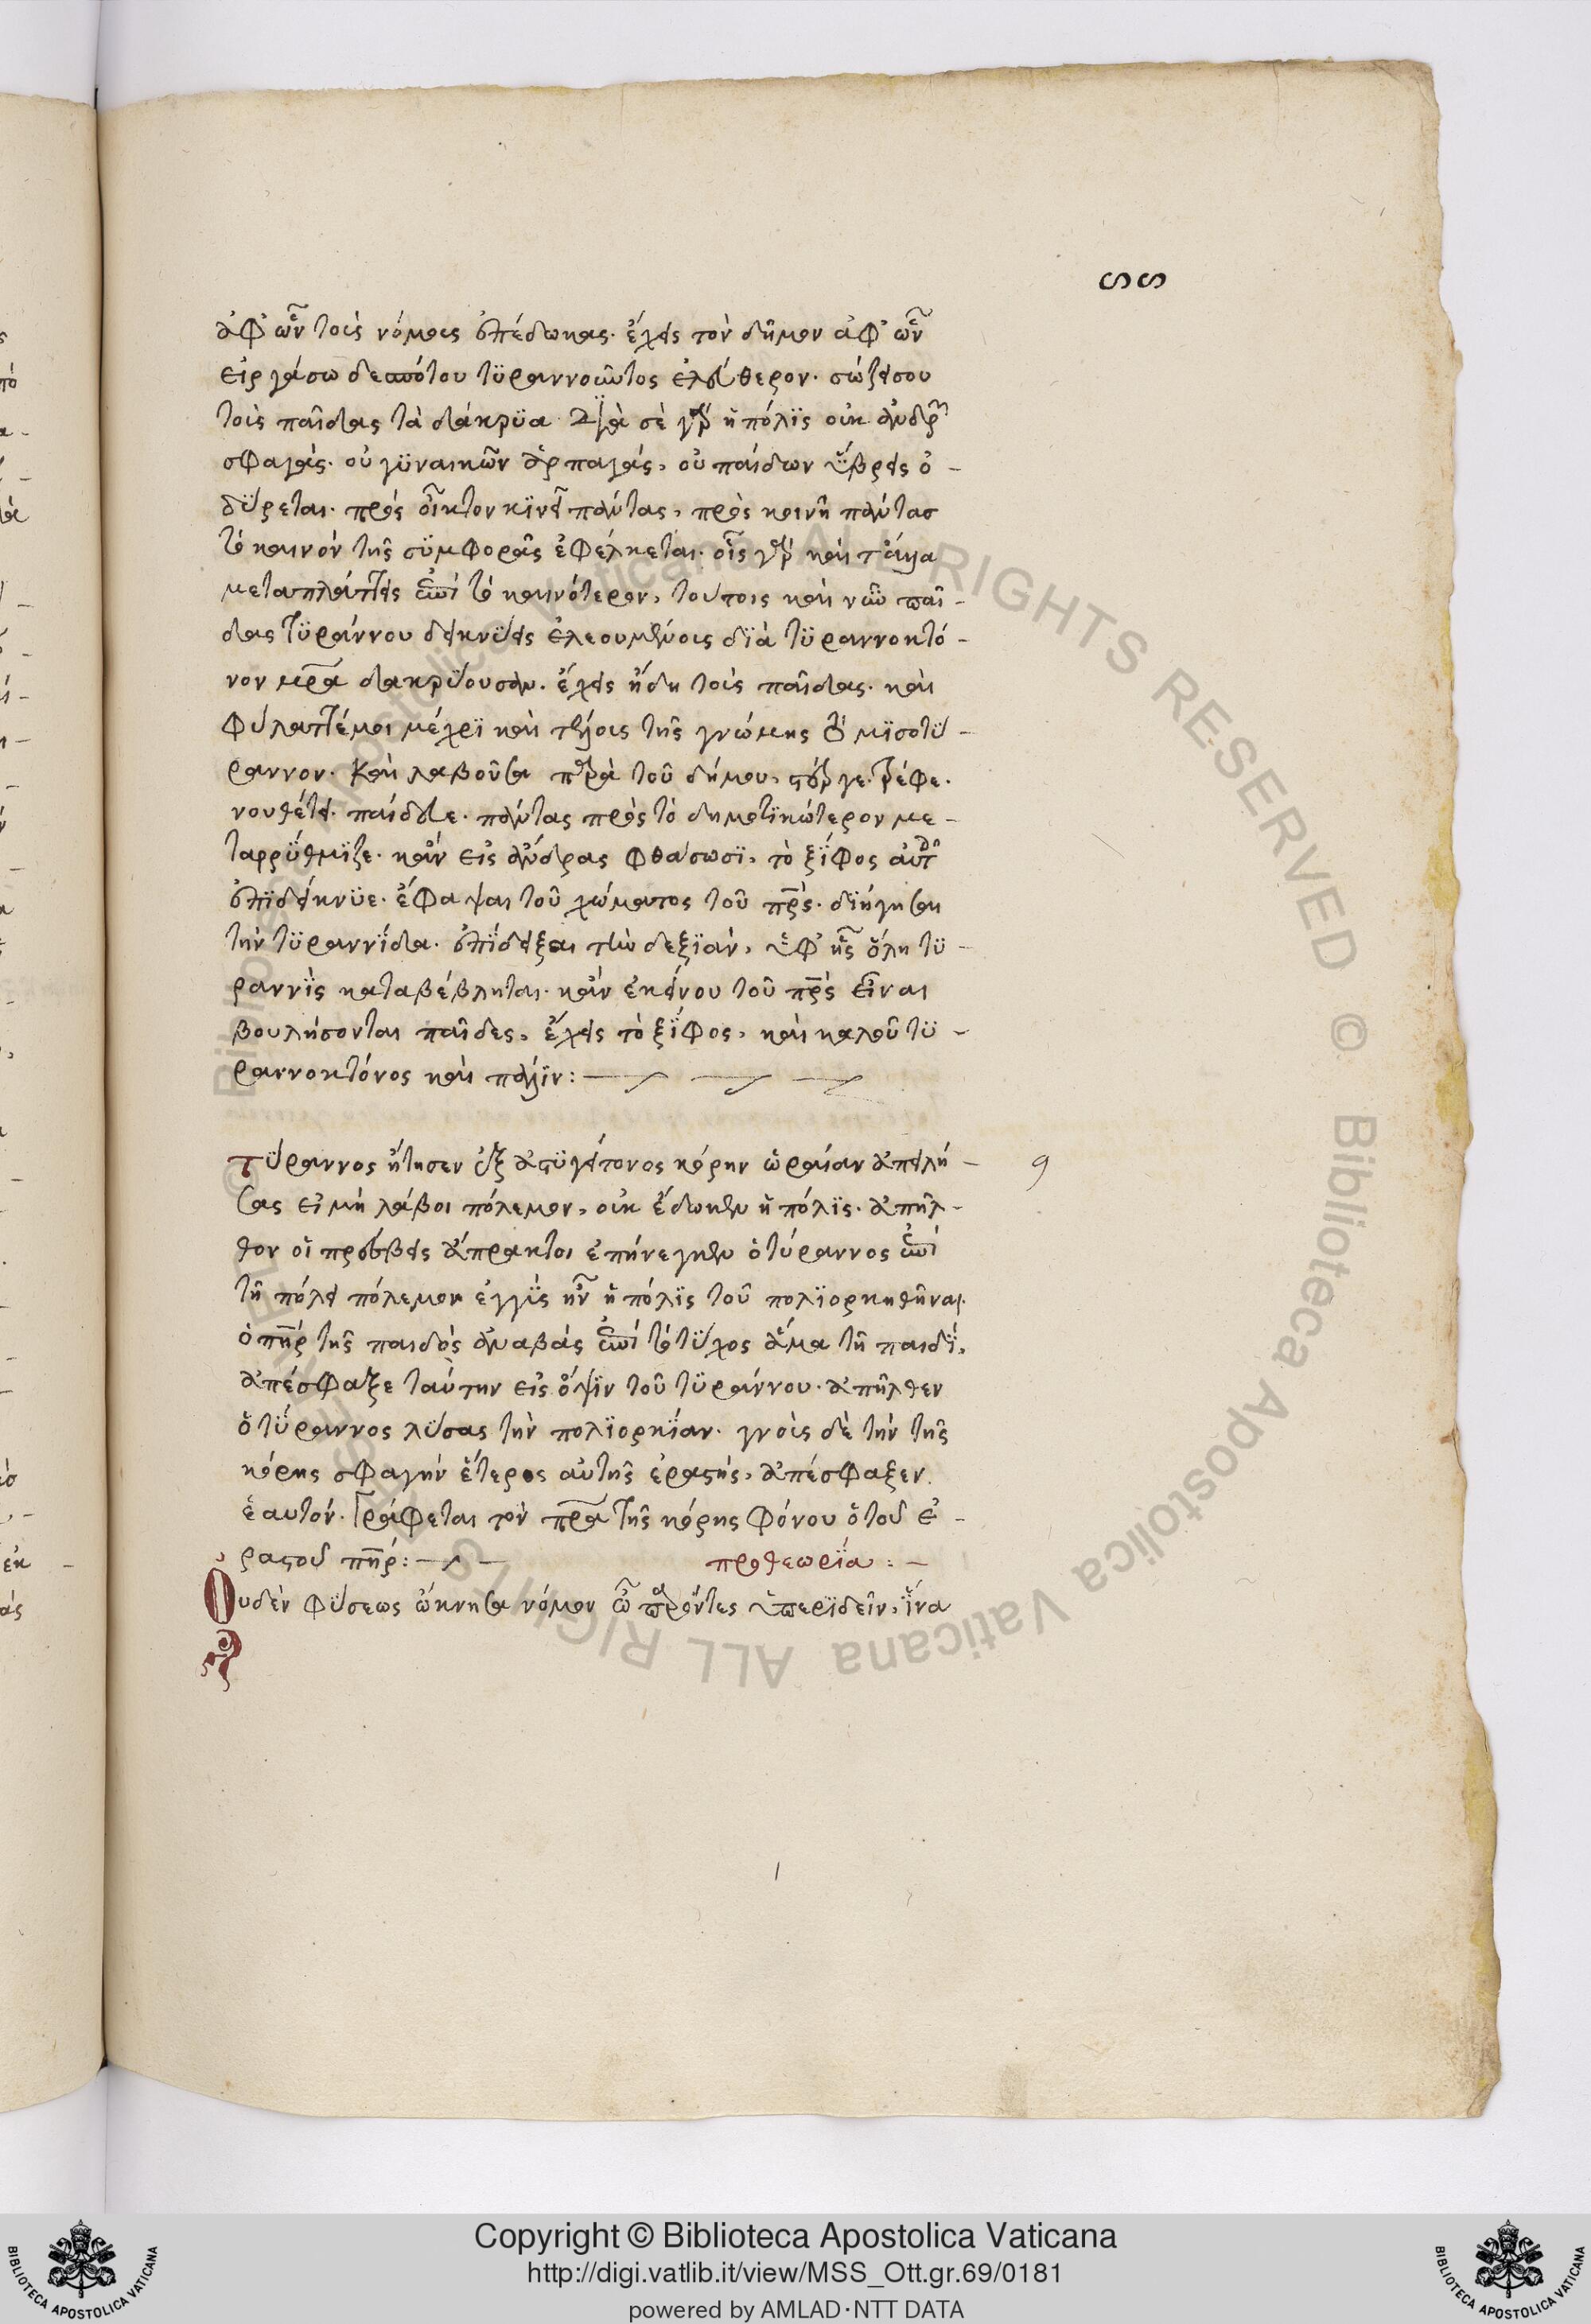 ἀφ' ὧν τοῖς νόμοις ἐπέδωκας. ἔχεις τὸν δῆμον ἀφ' ὧν
εἰργάσω δεσπότου τυραννοῦντος ἐλεύθερον. σώζει σου
τοῖς παῖδας τὰ δάκρυα διὰ σὲ γὰρ ἡ πόλις οὐκ ἀνδρῶν
σφαγάς. οὐ γυναικῶν ἁρπαγάς, οὐ παίδων ὕβρεις ὀ-
δύρεται. πρὸς οἶκτον κινεῖ πάντας, πρὸς κοινῆ πάντασ
τὸ καινὸν τῆς συμφορᾶς ἐφέλκεται. οἷς γὰρ καὶ τἄλλα
μεταπλάττεις ἐπὶ τὸ καινότερον, τούτοις καὶ νῦν παῖ-
δας τυράννου δεικνύεις ἐλεουμένοις διὰ τυραννοκτό-
νον μητέρα δακρύουσαν. ἔχεις ἤδη τοὺς παῖδας. καὶ
φύλαττέ μοι μέχρι καὶ τέλους τῆς γνώμης τὸ μισοτύ-
ραννον. καὶ λαβοῦσα παρὰ τοῦ δήμου, στέργε. τρέφε.
νουθέτει. παίδευε. πάντας πρὸς τὸ δημοτικώτερον με-
ταρρύθμιζε. κἂν εἰς ἄνδρας φθάσωσι, τὸ ξίφος αὐτοῖς
ἐπιδείκνυε. ἔφαψαι τοῦ χώματος τοῦ πατρός. διήγησαι
τὴν τυραννίδα. ἐπίδειξαι τὴν δεξιὰν, ὑφ' ἧς ὅλη τυ-
ραννὶς καταβέβληται. κἂν ἐκείνου τοῦ πατρὸς εἶναι
βουλήσονται παῖδες, ἔχεις τὸ ξίφος, καὶ καλοῦ τυ-
ραννοκτόνος καὶ πάλιν:
τύραννος ἤτησεν ἐξ ἀστυγείτονος κόρην ὡραίαν ἀπειλή-
σας εἰ μὴ λάβοι πόλεμον, οὐκ ἔδωκεν ἡ πόλις. ἀπῆλ-
θον οἱ πρέσβεις ἄπρακτοι ἐπήνεγκεν ὁ τύραννος ἐπὶ
τῆ πόλει πόλεμον ἐγγὺς ἦν ἡ πόλις τοῦ πολιορκηθῆναι.
ὁ πατὴρ τῆς παιδὸς ἀναβὰς ἐπὶ τὸ τεῖχος ἅμα τῆ παιδὶ,
ἀπέσφαξε ταύτην εἰς ὄψιν τοῦ τυράννου. ἀπῆλθεν
ὁ τύραννος λύσας τὴν πολιορκίαν. γνοὺς δὲ τὴν τῆς
κόρης σφαγὴν ἕτερος αὐτῆς ἐραστὴς, ἀπέσφαξεν
ἑαυτόν. γράφεται τὸν πατέρα τῆς κόρης φόνου ὁ τοῦ ἐ-
ραστοῦ πατήρ: προθεωρία:
Οὐδὲν φύσεως ὤκνησα νόμον ὦ παρόντες ὑπεριδεῖν, ἵνα